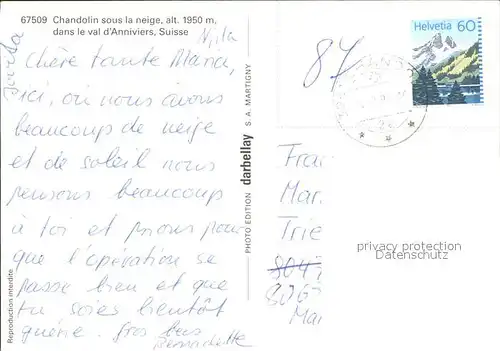 67509 Chandolin sous la neige, alt. 1950 m,
dans le val d'Anniviers, Suisse
Chère tante Maria,
ici, où nous avons
beaucoup de neige
et de soleil nous
pensons beaucoup
à toi et prions pour
que l'opération se
passe bien et que
tu soies bientôt
guérie. Gros becs
Bernadette
Reproduction interdite
PHOTO EDITION darbellay S.A. MARTIGNY
87
Helvetia 60
Frau
Mar
Trie
8047
8067
Mar
privacy protection
Datenschutz